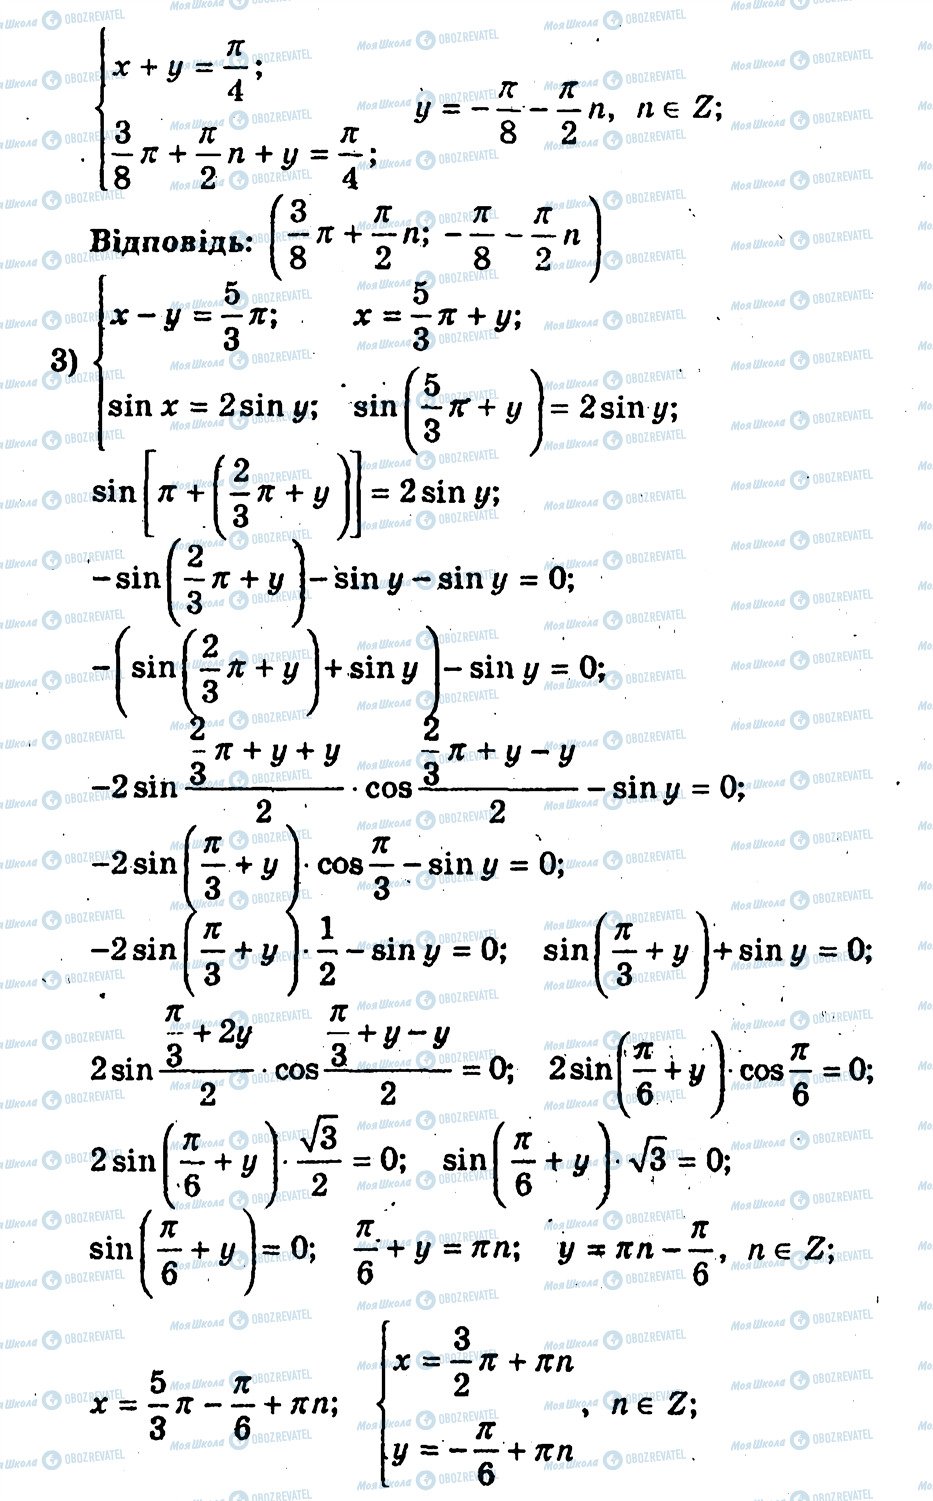 { x + y = π/4;
3/8 π + π/2 n + y = π/4;    y = −π/8 − π/2 n, n ∈ Z;
Відповідь: (3/8 π + π/2 n; −π/8 − π/2 n)
3) { x − y = 5/3 π;    x = 5/3 π + y;
sin x = 2 sin y;    sin(5/3 π + y) = 2 sin y;
sin[π + (2/3 π + y)] = 2 sin y;
−sin(2/3 π + y) − sin y − sin y = 0;
−(sin(2/3 π + y) + sin y) − sin y = 0;
−2 sin (2/3 π + y + y)/2 · cos (2/3 π + y − y)/2 − sin y = 0;
−2 sin(π/3 + y) · cos π/3 − sin y = 0;
−2 sin(π/3 + y) · 1/2 − sin y = 0;    sin(π/3 + y) + sin y = 0;
2 sin (π/3 + 2y)/2 · cos (π/3 + y − y)/2 = 0;    2 sin(π/6 + y) · cos π/6 = 0;
2 sin(π/6 + y) · √3/2 = 0;    sin(π/6 + y) · √3 = 0;
sin(π/6 + y) = 0;    π/6 + y = πn;    y = πn − π/6, n ∈ Z;
x = 5/3 π − π/6 + πn;    { x = 3/2 π + πn
y = −π/6 + πn , n ∈ Z;
МояШкола OBOZREVATEL